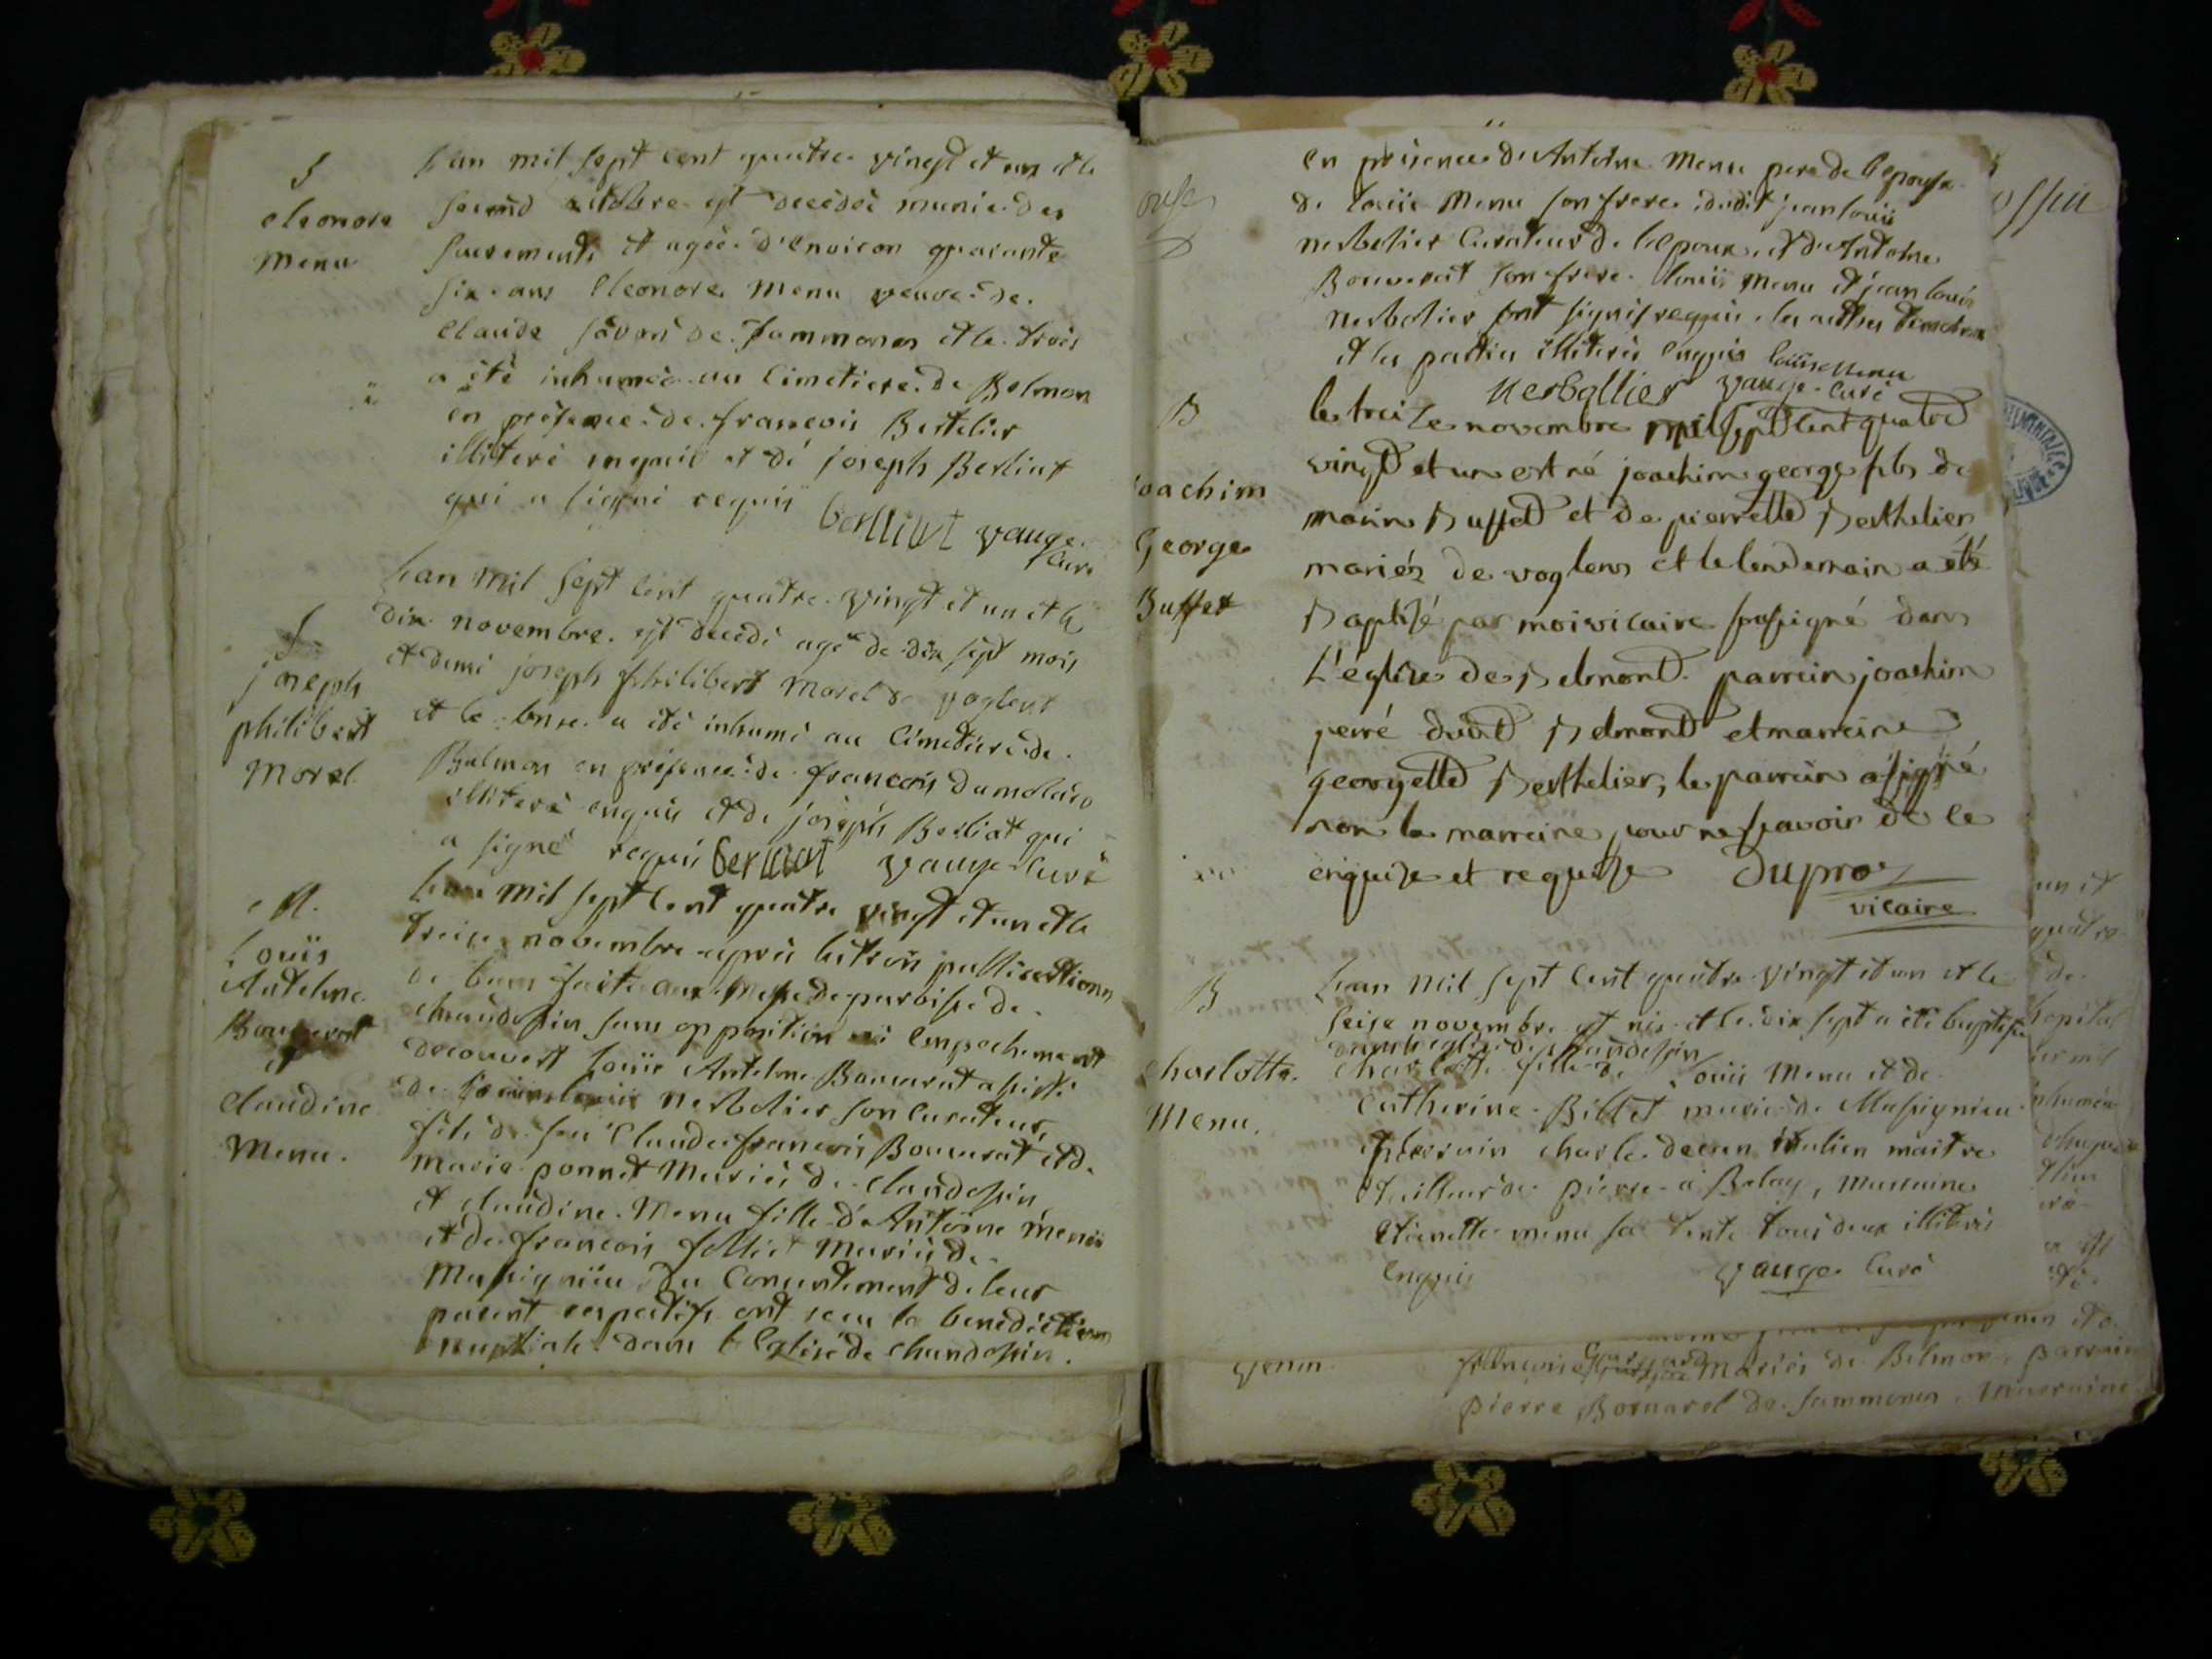 S
eleonore
Menu
Lan mil sept cent quatre vingt et un et le
second octobre est decedeé munie des
sacrements et ageé d'environ quarante
six ans Eleonore Menu veuve de
Claude savori de Sammonon et le trois
a été inhumeé au Cimetiere de Belmon
en presence de francois Bertelier
illiteré enquis et de joseph Berliat
qui a signé requis
berlliat vauge
Curé
S
joseph
philibert
Morel
Lan mil sept cent quatre vingt et un et le
dix novembre est decedé agé de dix sept mois
et demi joseph philibert Morel de voglent
et le onze a été inhumé au Cimetiere de
Belmon en presence de francois dumolard
illiteré enquis et de joseph Berliat qui
a signé requis berliat vauge Curé
M.
Louis
Antelme
Bouverat
et
Claudine
Menu.
Lan mil sept cent quatre vingt et un et le
treise novembre apres les trois publications
de bans faite aux Messe de paroisse de
chandossin sans opposition ni Empechement
decouvert Louis Antelme Bouverat assisté
de jean louis Nerbolier son Curateur
fils de feu Claude francois Bouverat et de
Marie ponnet Mariés de Chandossin
et Claudine Menu fille d'Antoine Menu
et de francois Mariés de
Massignieu du Consentement de leur
parent respectifs ont recu la benediction
nuptiale dans l'Eglise de Chandossin.
ouse
en presence d'Antoine Menu pere de l'epouse
de Louis Menu son frere dudit jean louis
nerbolier Curateur de l'epoux, et d'Antoine
Bouverat son frere. Louis Menu et jean louis
Nerbolier ont signés requis les autres temoins
et les parties illiterés enquis louis Menu
Nerbollier vauge Curé
B
joachim
George
Buffet
le treize novembre mil sept cent quatre
vingt et un est né joachim george fils de
marin Buffet et de pierrette Berthelier
mariéz de voglens et le lendemain a été
Baptizé par moi vicaire soussigné dans
L'églize de Belmont parrein joachim
perré dudit Belmont et marreine
georgette Berthelier, le parrein a signé
non la marreine pour ne scavoir de ce
enquize et requize Dupro
vicaire
B
Charlotte
Menu.
Lan Mil sept cent quatre vingt et un et le
seise novembre est neé et le dix sept a été baptiseé
dans l'eglise de chandossin
Charlotte fille de Louis Menu et de
Catherine Billet mariés de Massignieu.
parrain Charle decan italien maitre
tailleur de pierre a Belay, marraine
Etienette menu sa tante tous deux illiterés
Enquis vauge Curé
un et
quatre
de
hopital
inhumeé
genin
francoise Mariés de Belmon, parrain
pierre Bornarel de Sammonon. Marraine